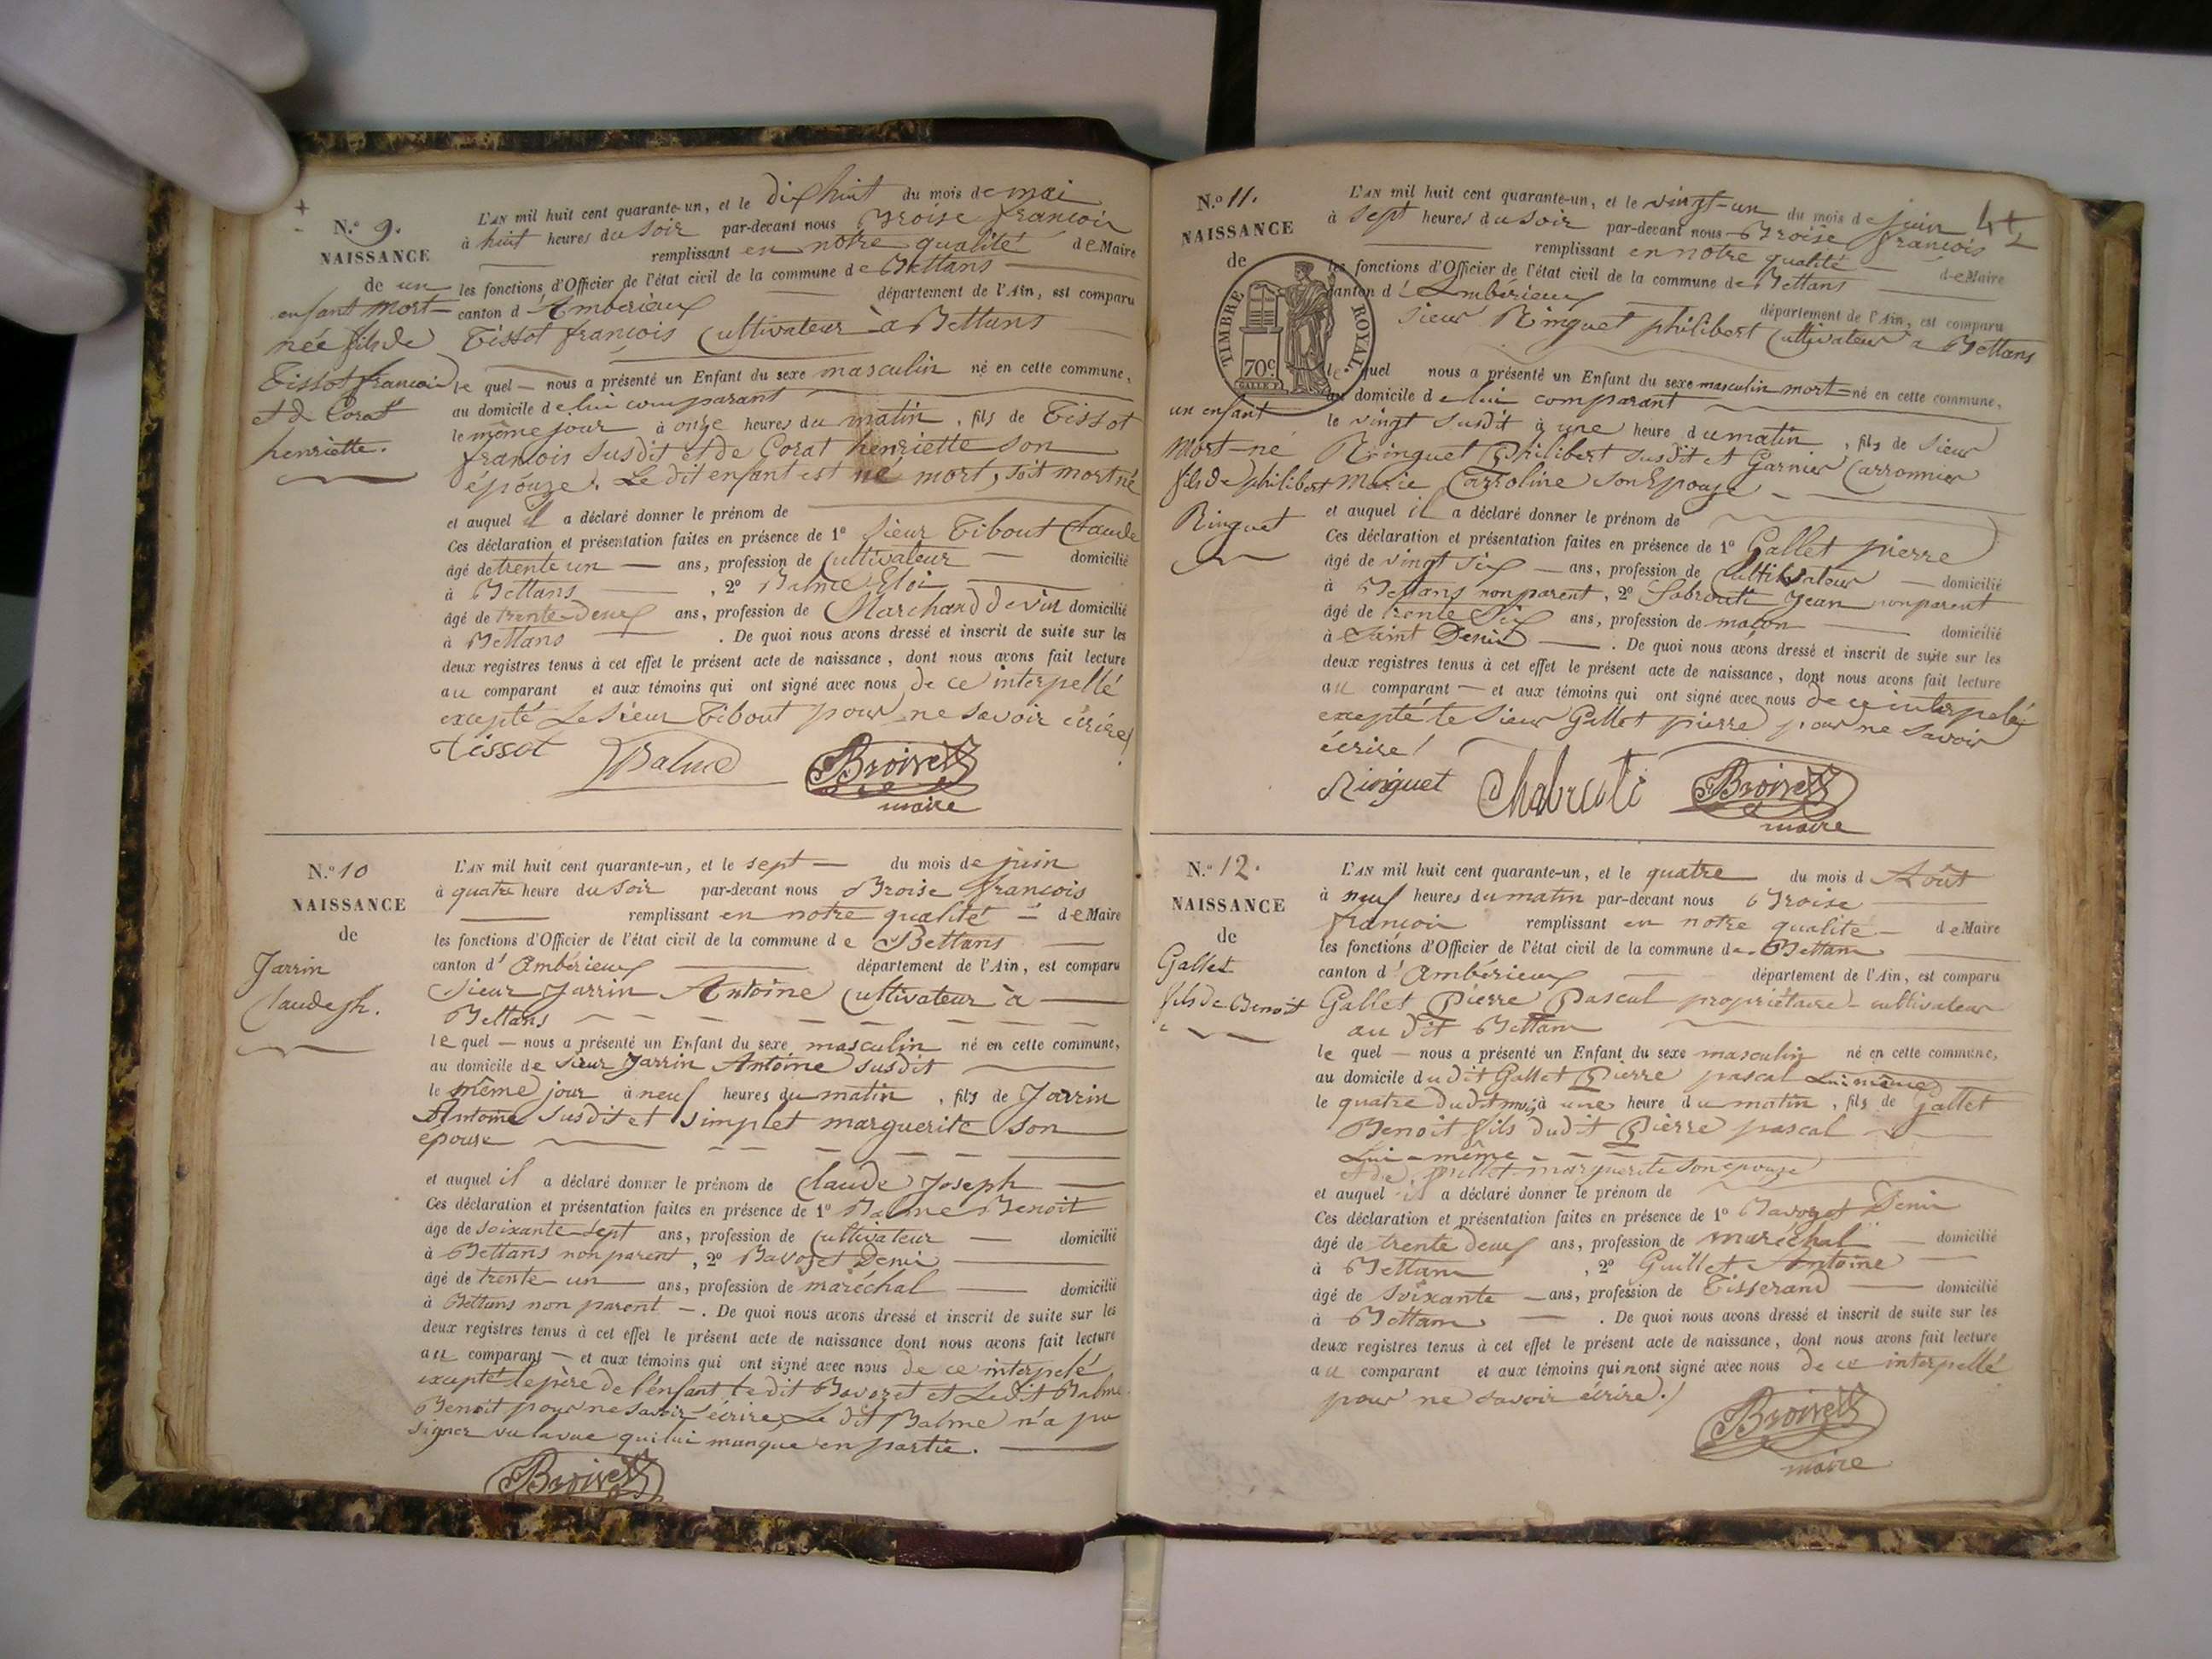 N.o 9.
NAISSANCE
de un
enfant mort=
née fils de
Tissot françois
et de Corat
henriette.
L'AN mil huit cent quarante-un, et le dix huit du mois de mai
à huit heures du soir par-devant nous Broise françois
remplissant en notre qualité de Maire
les fonctions d'Officier de l'état civil de la commune de Bettans
canton d'Ambérieux département de l'Ain, est comparu
Tissot françois Cultivateur à Bettans
le quel nous a présenté un Enfant du sexe masculin né en cette commune,
au domicile de lui comparant
le même jour à onze heures du matin, fils de Tissot
françois susdit et de Corat henriette son
épouze. Le dit enfant est né mort, soit mort né
et auquel il a déclaré donner le prénom de
Ces déclaration et présentation faites en présence de 1o Sieur Tibout Claude
âgé de trente un ans, profession de Cultivateur domicilié
à Bettans, 2o Balme Eloi
âgé de trente-deux ans, profession de Marchand de vin domicilié
à Bettans. De quoi nous avons dressé et inscrit de suite sur les
deux registres tenus à cet effet le présent acte de naissance, dont nous avons fait lecture
au comparant et aux témoins qui ont signé avec nous de ce interpellé
excepté Le Sieur Tibout pour ne savoir écrire
Tissot Balme Broise
maire
N.o 10
NAISSANCE
de
Jarrin
Claude jh.
L'AN mil huit cent quarante-un, et le sept du mois de juin
à quatre heure du soir par-devant nous Broise françois
remplissant en notre qualité de Maire
les fonctions d'Officier de l'état civil de la commune de Bettans
canton d'Ambérieux département de l'Ain, est comparu
Sieur Jarrin Antoine Cultivateur à
Bettans
le quel nous a présenté un Enfant du sexe masculin né en cette commune,
au domicile de Sieur Jarrin Antoine susdit
le même jour à neuf heures du matin, fils de Jarrin
Antoine susdit et Simplet marguerite son
épouse
et auquel il a déclaré donner le prénom de Claude Joseph
Ces déclaration et présentation faites en présence de 1o Balme Benoit
âgé de soixante-sept ans, profession de Cultivateur domicilié
à Bettans non parent, 2o Bavozet Denis
âgé de trente-un ans, profession de maréchal domicilié
à Bettans non parent. De quoi nous avons dressé et inscrit de suite sur les
deux registres tenus à cet effet le présent acte de naissance dont nous avons fait lecture
au comparant et aux témoins qui ont signé avec nous de ce interpelé
excepté le père de l'enfant le dit Bavozet et Le dit Balme
Benoit pour ne savoir écrire, Le dit Balme n'a pu
signer vu la vue qui lui manque en partie.
Broise
42
N.o 11.
NAISSANCE
de
TIMBRE ROYAL.
70c.
un enfant
Mort-né
fils de philibert
Ringuet
L'AN mil huit cent quarante-un, et le vingt-un du mois de juin
à sept heures du soir par-devant nous Broise françois
remplissant en notre qualité de Maire
les fonctions d'Officier de l'état civil de la commune de Bettans
canton d'Ambérieux département de l'Ain, est comparu
Sieur Ringuet philibert Cultivateur à Bettans
le quel nous a présenté un Enfant du sexe masculin mort=né en cette commune,
au domicile de lui comparant
le vingt susdit à une heure du matin, fils de Sieur
Ringuet Philibert susdit et Garnier Carronnier
Marie Carroline son Epouze
et auquel il a déclaré donner le prénom de
Ces déclaration et présentation faites en présence de 1o Gallet pierre
âgé de vingt six ans, profession de Cultivateur domicilié
à Bettans non parent, 2o Jean non parent
âgé de trente Six ans, profession de maçon domicilié
à Saint Denis. De quoi nous avons dressé et inscrit de suite sur les
deux registres tenus à cet effet le présent acte de naissance, dont nous avons fait lecture
au comparant et aux témoins qui ont signé avec nous de ce interpelé
excepté le Sieur Gallet pierre pour ne savoir
écrire
Ringuet Broise
maire
N.o 12.
NAISSANCE
de
Gallet
fils de Benoit
L'AN mil huit cent quarante-un, et le quatre du mois d Août
à neuf heures du matin par-devant nous Broise
françois remplissant en notre qualité de Maire
les fonctions d'Officier de l'état civil de la commune de Bettans
canton d'Ambérieux département de l'Ain, est comparu
Gallet Pierre Pascal propriétaire-cultivateur
au dit Bettans
le quel nous a présenté un Enfant du sexe masculin né en cette commune,
au domicile du dit Gallet Pierre pascal Lui même
le quatre dudit mois à une heure du matin, fils de Gallet
Benoit fils dudit Pierre pascal
Lui-même
et de marguerite son épouze
et auquel il a déclaré donner le prénom de
Ces déclaration et présentation faites en présence de 1o Bavozet Denis
âgé de trente deux ans, profession de maréchal domicilié
à Bettans, 2o Guillet Antoine
âgé de soixante ans, profession de Tisserand domicilié
à Bettans. De quoi nous avons dressé et inscrit de suite sur les
deux registres tenus à cet effet le présent acte de naissance, dont nous avons fait lecture
au comparant et aux témoins qui nont signé avec nous de ce interpellé
pour ne savoir écrire.
Broise
maire